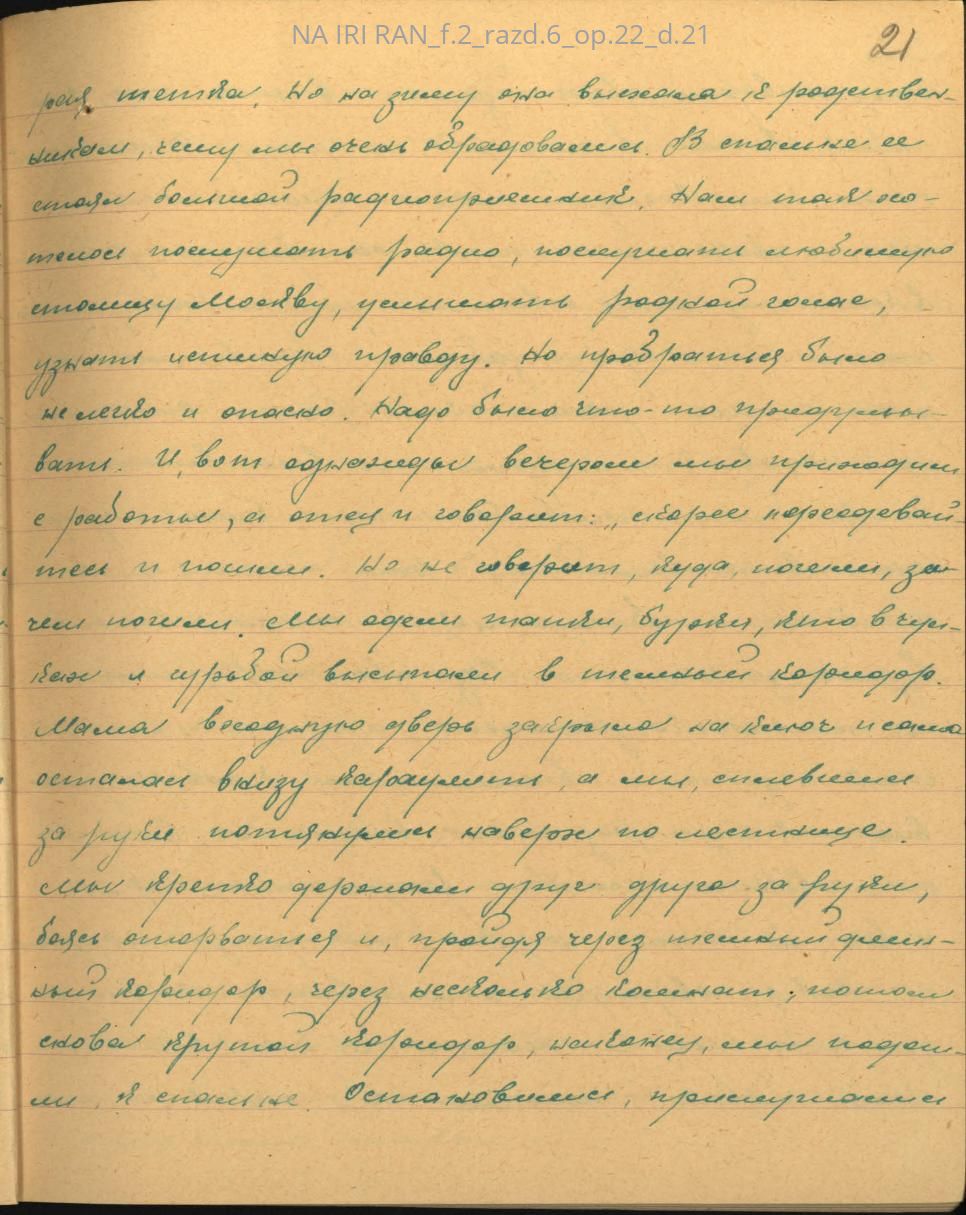 NA IRI RAN_f.2_razd.6_op.22_d.21
21
рая тетка. Но на зиму она выехала к родствен-
никам, чему мы очень обрадовались. В спальне ее
стоял большой радиоприемник. Нам так хо-
телось послушать радио, послушать любимую
столицу Москву, услышать родной голос,
узнать истинную правду. Но пробраться было
не легко и опасно. Надо было что-то придумы-
вать. И, вот однажды вечером мы приходим
с работы, а отец и говорит: „скорее переодевай-
тесь и пошли. Но не говорит, куда, почему, за-
чем пошли. Мы одели тапки, бурки, кто в чул-
ках и гурьбой высыпали в темный коридор.
Мама входную дверь закрыла на ключ и сама
осталась внизу караулить, а мы, сцепившись
за руки потянулись наверх по лестнице.
Мы крепко держали друг друга за руки,
боясь оторваться и, пройдя через темный длин-
ный коридор, через несколько комнат, потом
снова крутой коридор, наконец, мы подош-
ли, к спальне. Остановились, прислушались